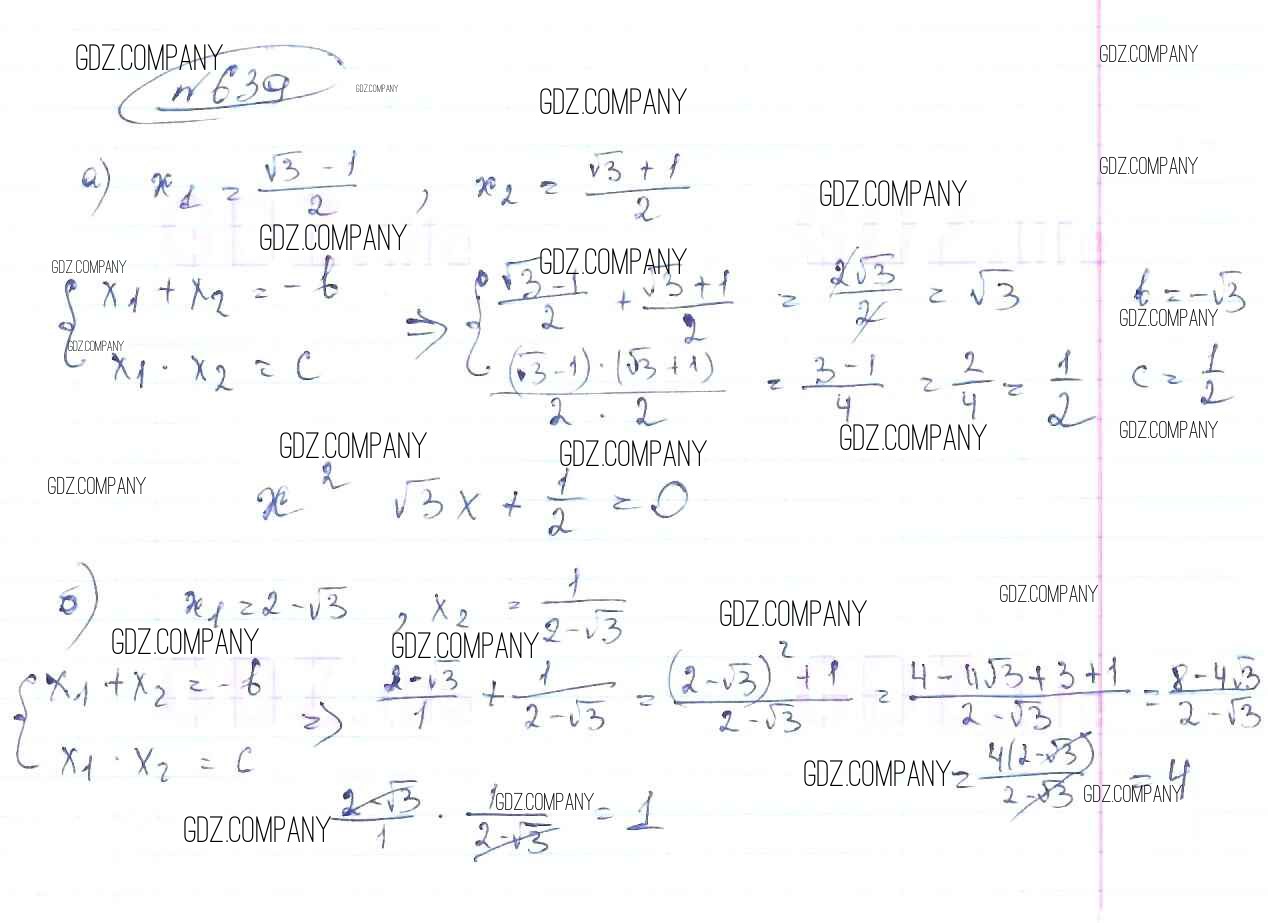 GDZ.COMPANY GDZ.COMPANY
№639 GDZ.COMPANY GDZ.COMPANY
а) x₁ = (√3 - 1)/2 , x₂ = (√3 + 1)/2 GDZ.COMPANY GDZ.COMPANY
GDZ.COMPANY GDZ.COMPANY GDZ.COMPANY
{ x₁ + x₂ = -b ⇒ { (√3-1)/2 + (√3+1)/2 = 2√3/2 = √3 b = -√3
GDZ.COMPANY GDZ.COMPANY
x₁ · x₂ = c (√3-1)·(√3+1)/(2 · 2) = (3-1)/4 = 2/4 = 1/2 c = 1/2
GDZ.COMPANY GDZ.COMPANY GDZ.COMPANY GDZ.COMPANY
GDZ.COMPANY x² √3x + 1/2 = 0
б) x₁ = 2-√3 , x₂ = 1/(2-√3) GDZ.COMPANY GDZ.COMPANY
GDZ.COMPANY GDZ.COMPANY
{ x₁ + x₂ = -b ⇒ (2-√3)/1 + 1/(2-√3) = ((2-√3)²+1)/(2-√3) = (4-4√3+3+1)/(2-√3) = (8-4√3)/(2-√3)
x₁ · x₂ = c GDZ.COMPANY = 4(2-√3)/(2-√3) = 4 GDZ.COMPANY
GDZ.COMPANY (2-√3)/1 · 1/(2-√3) = 1 GDZ.COMPANY